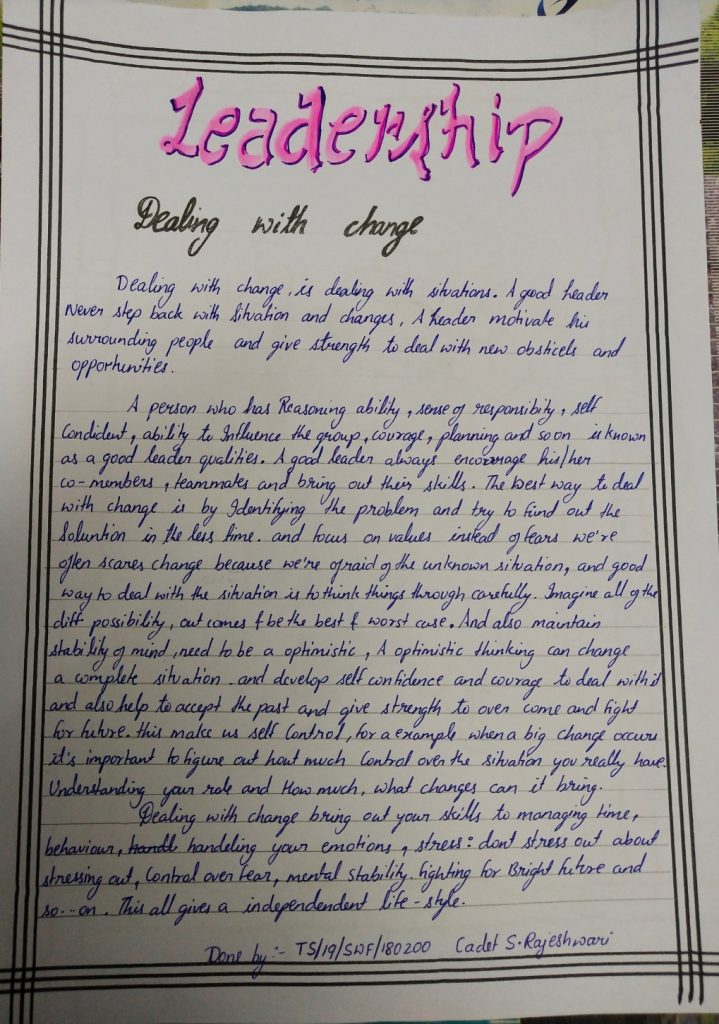 Leadership
Dealing with change
Dealing with change, is dealing with situations. A good header
Never step back with Situation and changes, A header motivate his
surrounding people and give strength to deal with new obsticels and
opportunities.
A person who has Reasoning ability, sense of responsibity, self
Condident, ability to Influence the group, courage, planning and so on is known
as a good leader qualities. A good leader always encourage his/her
co-members, teammates and bring out their skills. The best way to deal
with change is by Identifying the problem and try to find out the
Soluntion in the less time. and focus on values instead of fears we're
often scares change because we're afraid of the unknown situation, and good
way to deal with the situation is to think things through carefully. Imagine all of the
diff possibility, out comes & be the best & worst case. And also maintain
stability of mind, need to be a optimistic, A optimistic thinking can change
a complete situation. and develop self confidence and courage to deal with it
and also help to accept the past and give strength to over come and fight
for future. this make us self Control, for a example when a big change occurs
it's important to figure out hout much Control over the situation you really have.
Understanding your role and How much, what changes can it bring.
Dealing with change bring out your skills to managing time,
behaviour, handl handeling your emotions, stress: dont stress out about
stressing out, Control over fear, mental stability. fighting for Bright future and
so--on. This all gives a independendent life-style.
Done by:- TS/19/SWF/180200 Cadet S.Rajeshwari